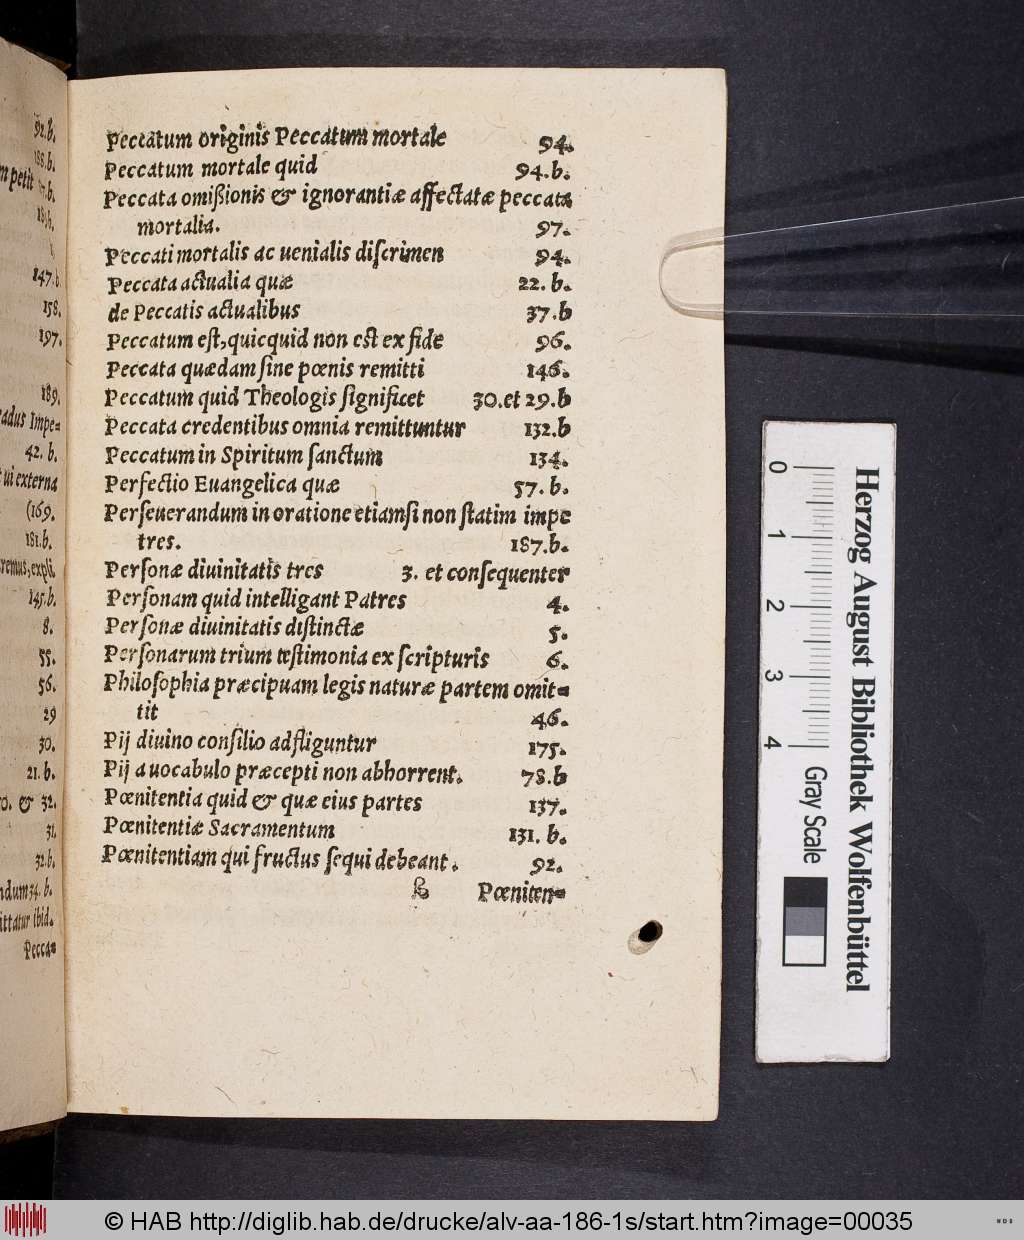 92.b.
188.b.
m petit 17.b.
18.b.
147.b.
158.
197.
189.
radus Impe=
42. b.
t ui externa
(169.
181.b.
remus, expli.
145.b.
8.
55.
56.
29
30.
21. b.
ro. & 32.
31.
32.b.
ndum 34. b.
ittatur ibid.
Pecca=
Peccatum originis Peccatum mortale 94.
Peccatum mortale quid 94.b.
Peccata omißionis & ignorantiæ affectatæ peccata
mortalia. 97.
Peccati mortalis ac uenialis diſcrimen 94.
Peccata actualia quæ 22. b.
de Peccatis actualibus 37.b
Peccatum eſt, quicquid non eſt ex fide 96.
Peccata quædam ſine pœnis remitti 146.
Peccatum quid Theologis ſignificet 30.et 29.b
Peccata credentibus omnia remittuntur 132.b
Peccatum in Spiritum ſanctum 134.
Perfectio Euangelica quæ 57. b.
Perſeuerandum in oratione etiamſi non ſtatim impe
tres. 187.b.
Perſonæ diuinitatis tres 3. et conſequenter
Perſonam quid intelligant Patres 4.
Perſonæ diuinitatis diſtinctæ 5.
Perſonarum trium teſtimonia ex ſcripturis 6.
Philoſophia præcipuam legis naturæ partem omit=
tit 46.
Pij diuino conſilio adfliguntur 175.
Pij a uocabulo præcepti non abhorrent. 78.b
Pœnitentia quid & quæ eius partes 137.
Pœnitentiæ Sacramentum 131. b.
Pœnitentiam qui fructus ſequi debeant. 92.
Pœniten=
Herzog August Bibliothek Wolfenbüttel
0 1 2 3 4 Gray Scale
© HAB http://diglib.hab.de/drucke/alv-aa-186-1s/start.htm?image=00035